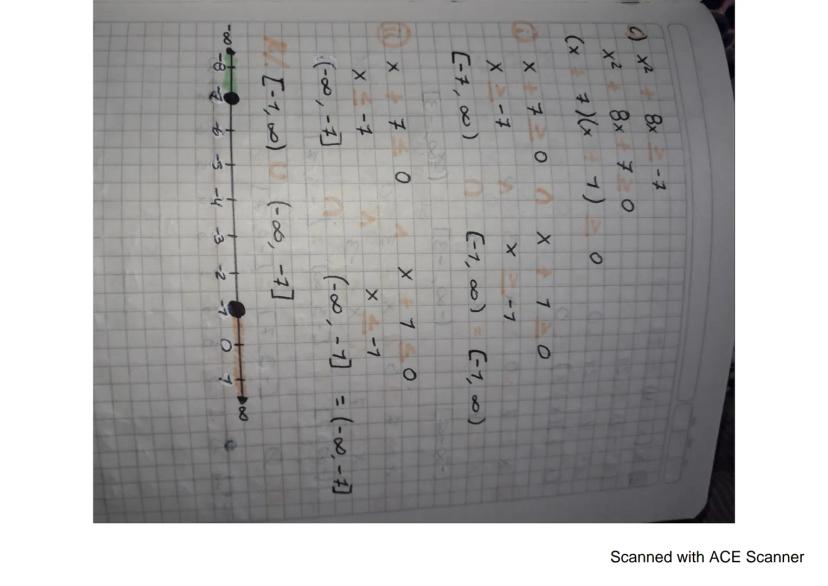 c) x² + 8x ≥ -7
x² + 8x + 7 ≥ 0
(x + 7)(x + 1) ≥ 0
i) x + 7 ≥ 0 ∧ x + 1 ≥ 0
x ≥ -7 ∧ x ≥ -1
[-7, ∞) ∩ [-1, ∞) = [-1, ∞)
ii) x + 7 ≤ 0 ∧ x + 1 ≤ 0
x ≤ -7 ∧ x ≤ -1
(-∞, -7] ∩ (-∞, -1] = (-∞, -7]
R/. [-1, ∞) ∪ (-∞, -7]
-∞ -8 -7 -6 -5 -4 -3 -2 -1 0 1 ∞
Scanned with ACE Scanner